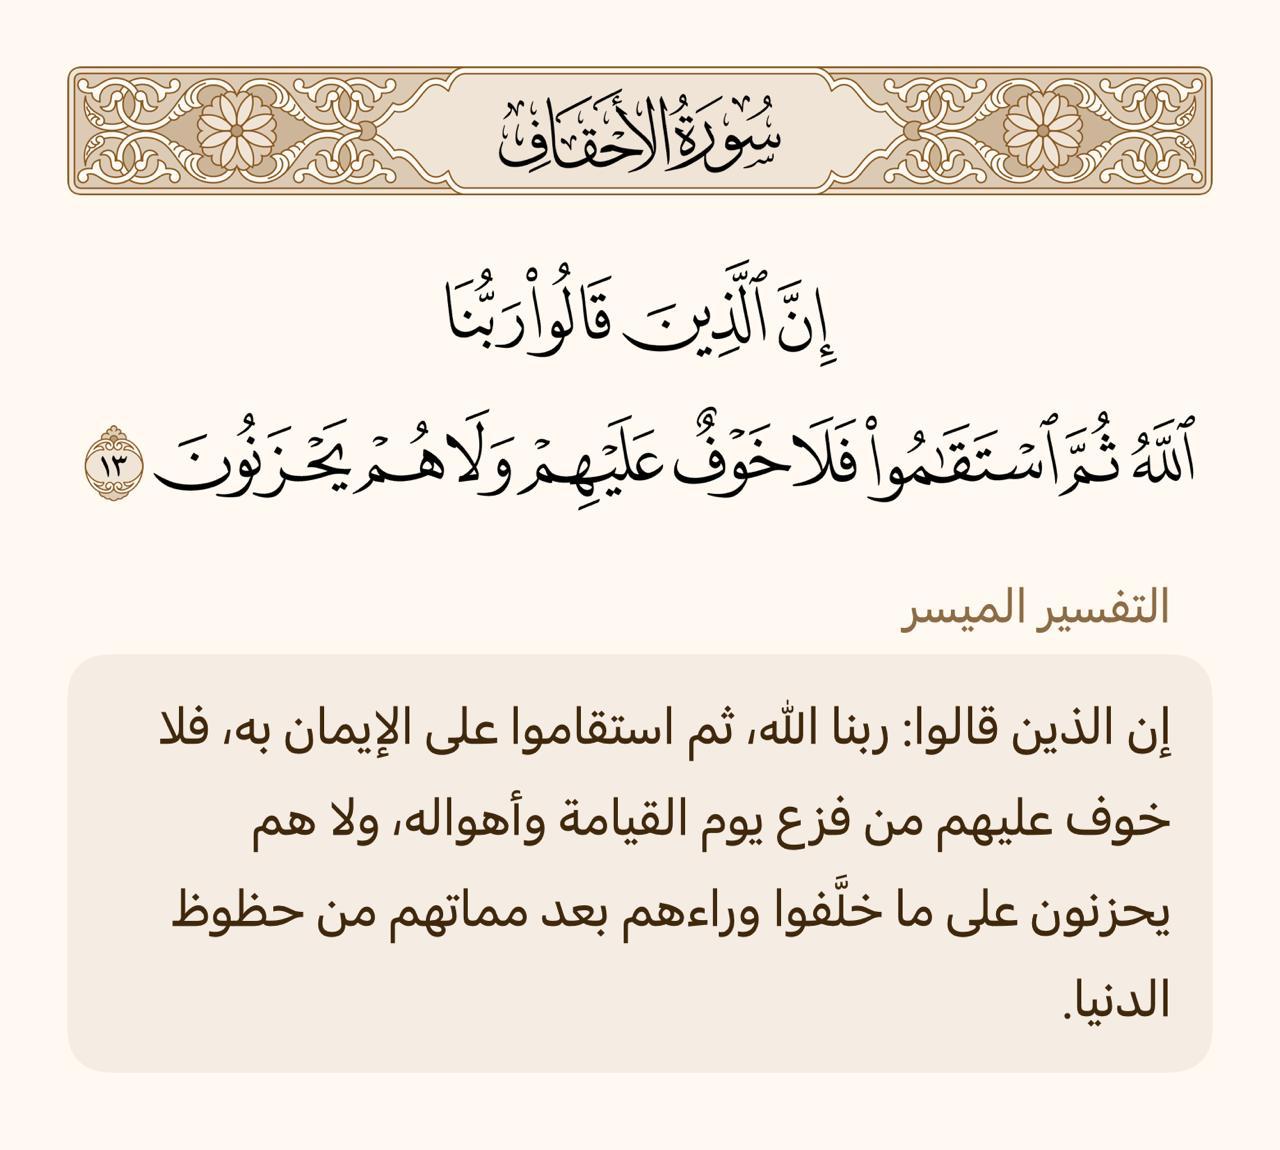 سُورَةُ الأَحْقَافِ
إِنَّ ٱلَّذِينَ قَالُوا۟ رَبُّنَا
ٱللَّهُ ثُمَّ ٱسْتَقَـٰمُوا۟ فَلَا خَوْفٌ عَلَيْهِمْ وَلَا هُمْ يَحْزَنُونَ ١٣
التفسير الميسر
إن الذين قالوا: ربنا الله، ثم استقاموا على الإيمان به، فلا
خوف عليهم من فزع يوم القيامة وأهواله، ولا هم
يحزنون على ما خلَّفوا وراءهم بعد مماتهم من حظوظ
الدنيا.